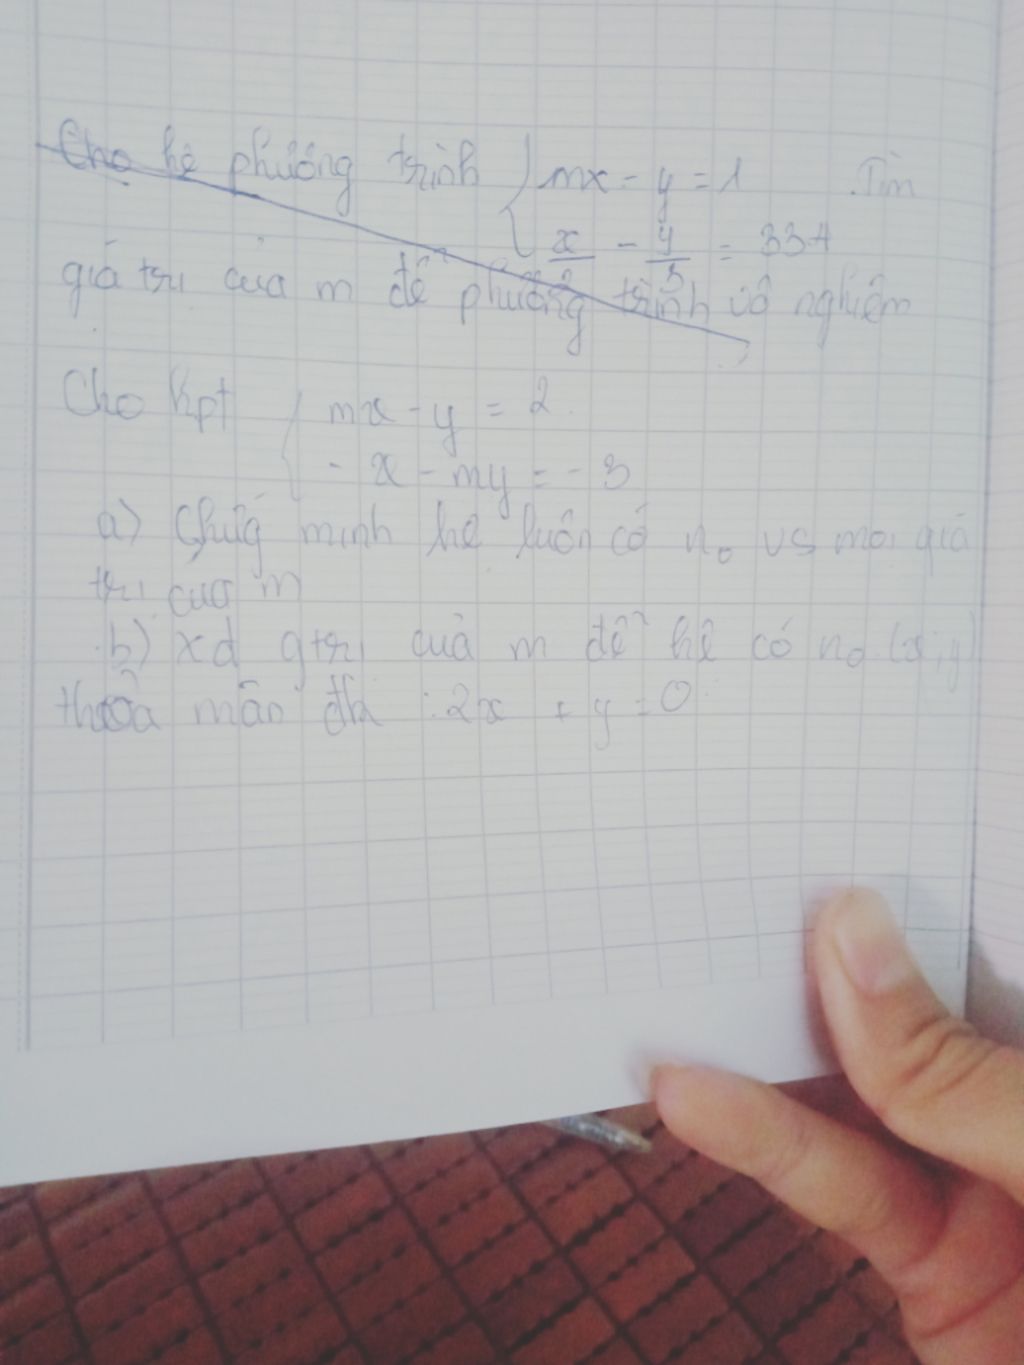 Cho hệ phương trình { mx - y = 1 Tìm
x/2 - y/3 = 334
giá trị của m để phương trình vô nghiệm
Cho hpt { mx - y = 2
- x - my = - 3
a) Chứg minh hệ luôn có no vs mọi giá
trị của m
b) xđ gtrị của m để hệ có no (x;y)
thỏa mãn đk : 2x + y = 0